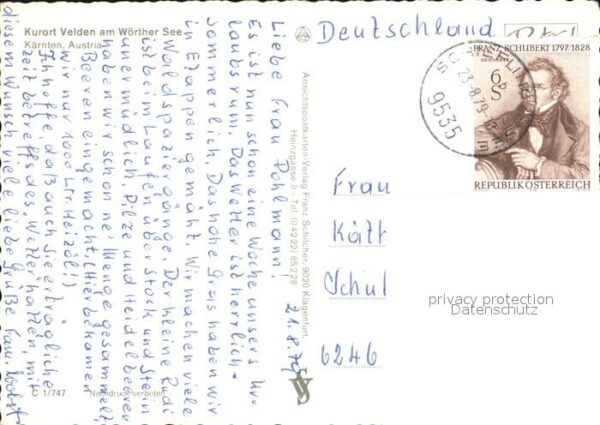 Kurort Velden am Wörther See
Kärnten, Austria
21.8.79
Liebe Frau Pohlmann!
Es ist nun schon eine Woche unsers Ur-
laubs rum. Das Wetter ist herrlich-
sommerlich. Das hohe Gras haben wir
in Etappen gemäht. Wir machen viele
Waldspaziergänge. Der kleine Rudi
ist beim Laufen über Stock und Stein
unermüdlich. Pilze und Heidelbeeren
haben wir schon ne' Menge gesammelt,
Beeren eingemacht. (Hier bekamen
wir nur 1000 Ltr. Heizöl!)
Ich hoffe, daß auch Sie erträgliche
Zeit betreffs des Wetter hatten, mit
diesem Wunsch viele liebe Grüße Fam.
C 1/747
Nachdruck verboten
Ansichtskarten-Verlag Franz Schilcher, 9020 Klagenfurt
Heinzgasse 8 - Tel. (04222) 85228
Deutschland
FRANZ SCHUBERT 1797/1828
6 S
REPUBLIK ÖSTERREICH
23.-8.79
9535
Frau
Kätt
Schul
6246
privacy protection
Datenschutz